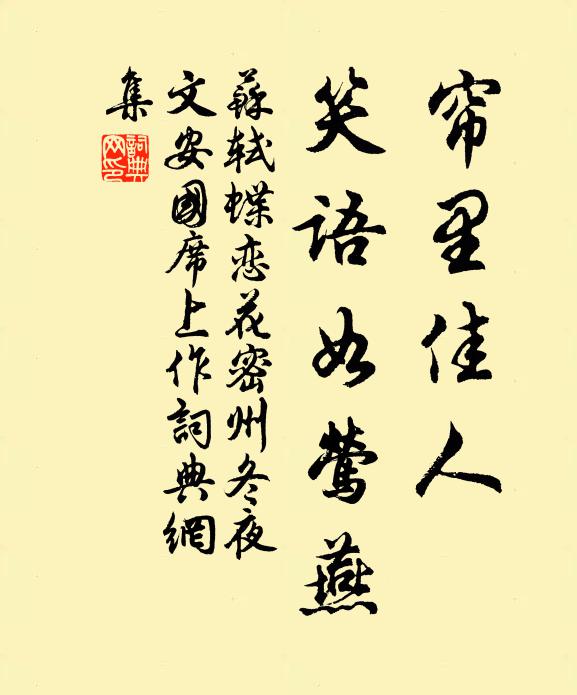 帘里佳人
笑语如莺燕
蘇轼蝶恋花密州冬夜
文安國席上作詞典網
集
詞典網印